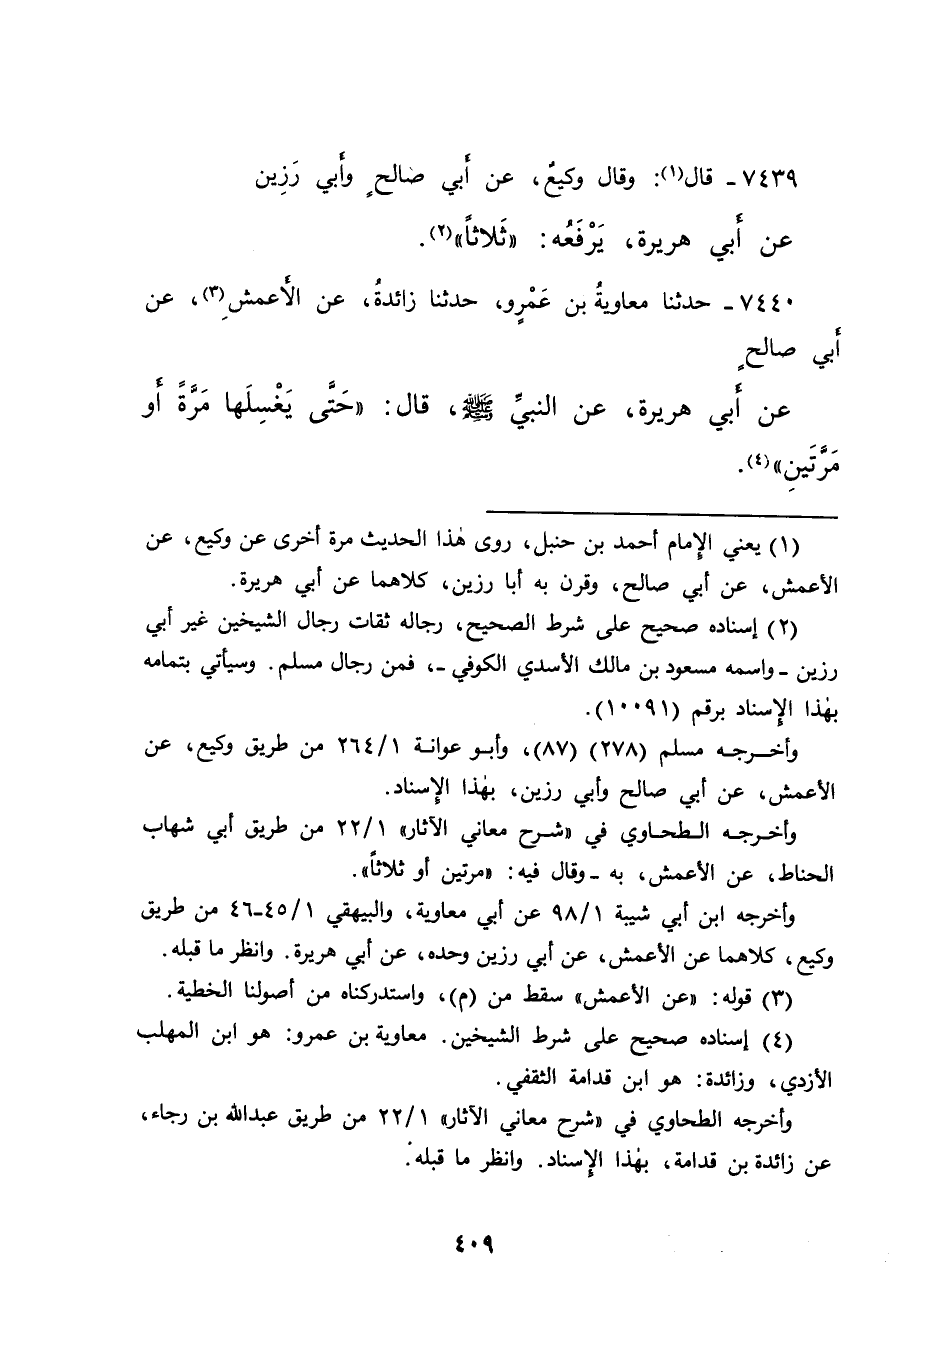 ٧٤٣٩ـ قال(١): وقال وكيعٌ، عن أَبي صالحٍ وأَبي رَزِين
عن أَبي هريرة، يَرْفَعُه: «ثَلاثاً»(٢).
٧٤٤٠ـ حدثنا معاويةُ بن عَمْرٍو، حدثنا زائدةُ، عن الأَعمشِ(٣)، عن
أَبي صالحٍ
عن أَبي هريرة، عن النبيِّ ﷺ، قال: «حَتَّى يَغْسِلَها مَرَّةً أَو
مَرَّتَينِ»(٤).
(١) يعني الإمام أحمد بن حنبل، روى هٰذا الحديث مرة أخرى عن وكيع، عن
الأعمش، عن أبي صالح، وقرن به أبا رزين، كلاهما عن أبي هريرة.
(٢) إسناده صحيح على شرط الصحيح، رجاله ثقات رجال الشيخين غير أبي
رزين ـ واسمه مسعود بن مالك الأسدي الكوفي ـ، فمن رجال مسلم. وسيأتي بتمامه
بهٰذا الإسناد برقم (١٠٠٩١).
وأخرجه مسلم (٢٧٨) (٨٧)، وأبو عوانة ٢٦٤/١ من طريق وكيع، عن
الأعمش، عن أبي صالح وأبي رزين، بهٰذا الإسناد.
وأخرجه الطحاوي في «شرح معاني الآثار» ٢٢/١ من طريق أبي شهاب
الحناط، عن الأعمش، به ـ وقال فيه: «مرتين أو ثلاثاً».
وأخرجه ابن أبي شيبة ٩٨/١ عن أبي معاوية، والبيهقي ٤٥/١-٤٦ من طريق
وكيع، كلاهما عن الأعمش، عن أبي رزين وحده، عن أبي هريرة. وانظر ما قبله.
(٣) قوله: «عن الأعمش» سقط من (م)، واستدركناه من أصولنا الخطية.
(٤) إسناده صحيح على شرط الشيخين. معاوية بن عمرو: هو ابن المهلب
الأزدي، وزائدة: هو ابن قدامة الثقفي.
وأخرجه الطحاوي في «شرح معاني الآثار» ٢٢/١ من طريق عبدالله بن رجاء،
عن زائدة بن قدامة، بهٰذا الإسناد. وانظر ما قبله.
٤٠٩